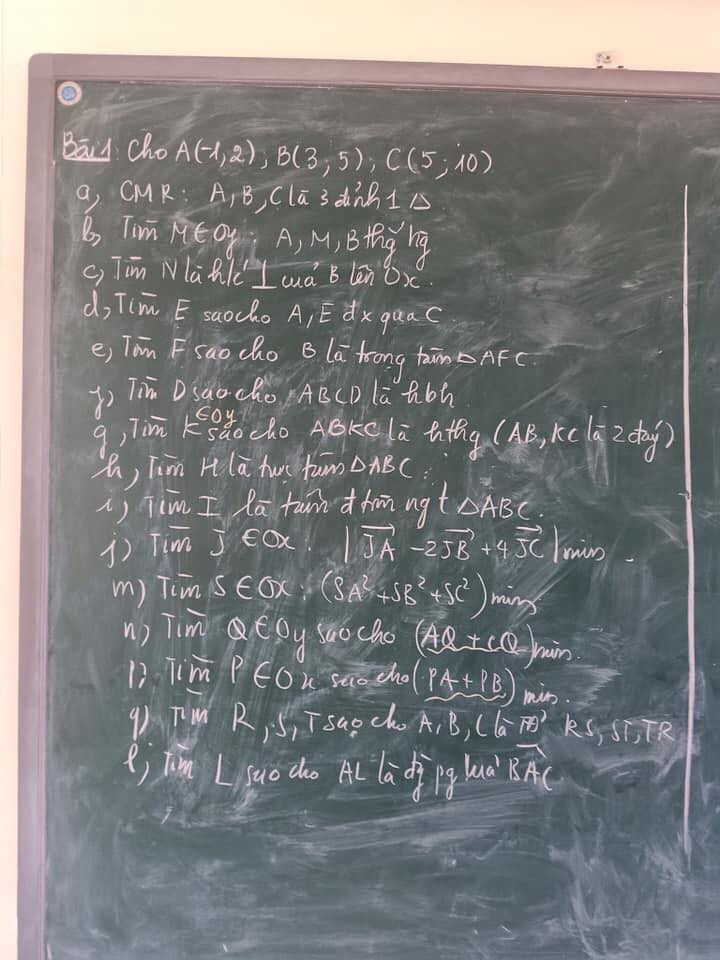 Bài 1: Cho A(-1,2); B(3;5); C(5;10)
a, CMR: A, B, C là 3 đỉnh 1 Δ
b, Tìm M∈Oy: A, M, B thg hg
c, Tìm N là h/c ⊥ của B lên Ox.
d, Tìm E sao cho A, E đx qua C
e, Tìm F sao cho B là trọng tâm ΔAFC.
f) Tìm D sao cho ABCD là hbh
∈Oy
g, Tìm K sao cho ABKC là hthg (AB, KC là 2 đáy)
h, Tìm H là trực tâm ΔABC.
i) Tìm I là tâm đ tròn ng t ΔABC.
j) Tìm J ∈Ox: |JA⃗ - 2JB⃗ + 4JC⃗| min
m) Tìm S∈Ox: (SA² + SB² + SC²) min
n) Tìm Q∈Oy sao cho (AQ + CQ) min.
p) Tìm P∈Ox sao cho (PA + PB) min.
q) Tìm R, S, T sao cho A, B, C là RS, ST, TR
l) Tìm L sao cho AL là đg pg của BAC